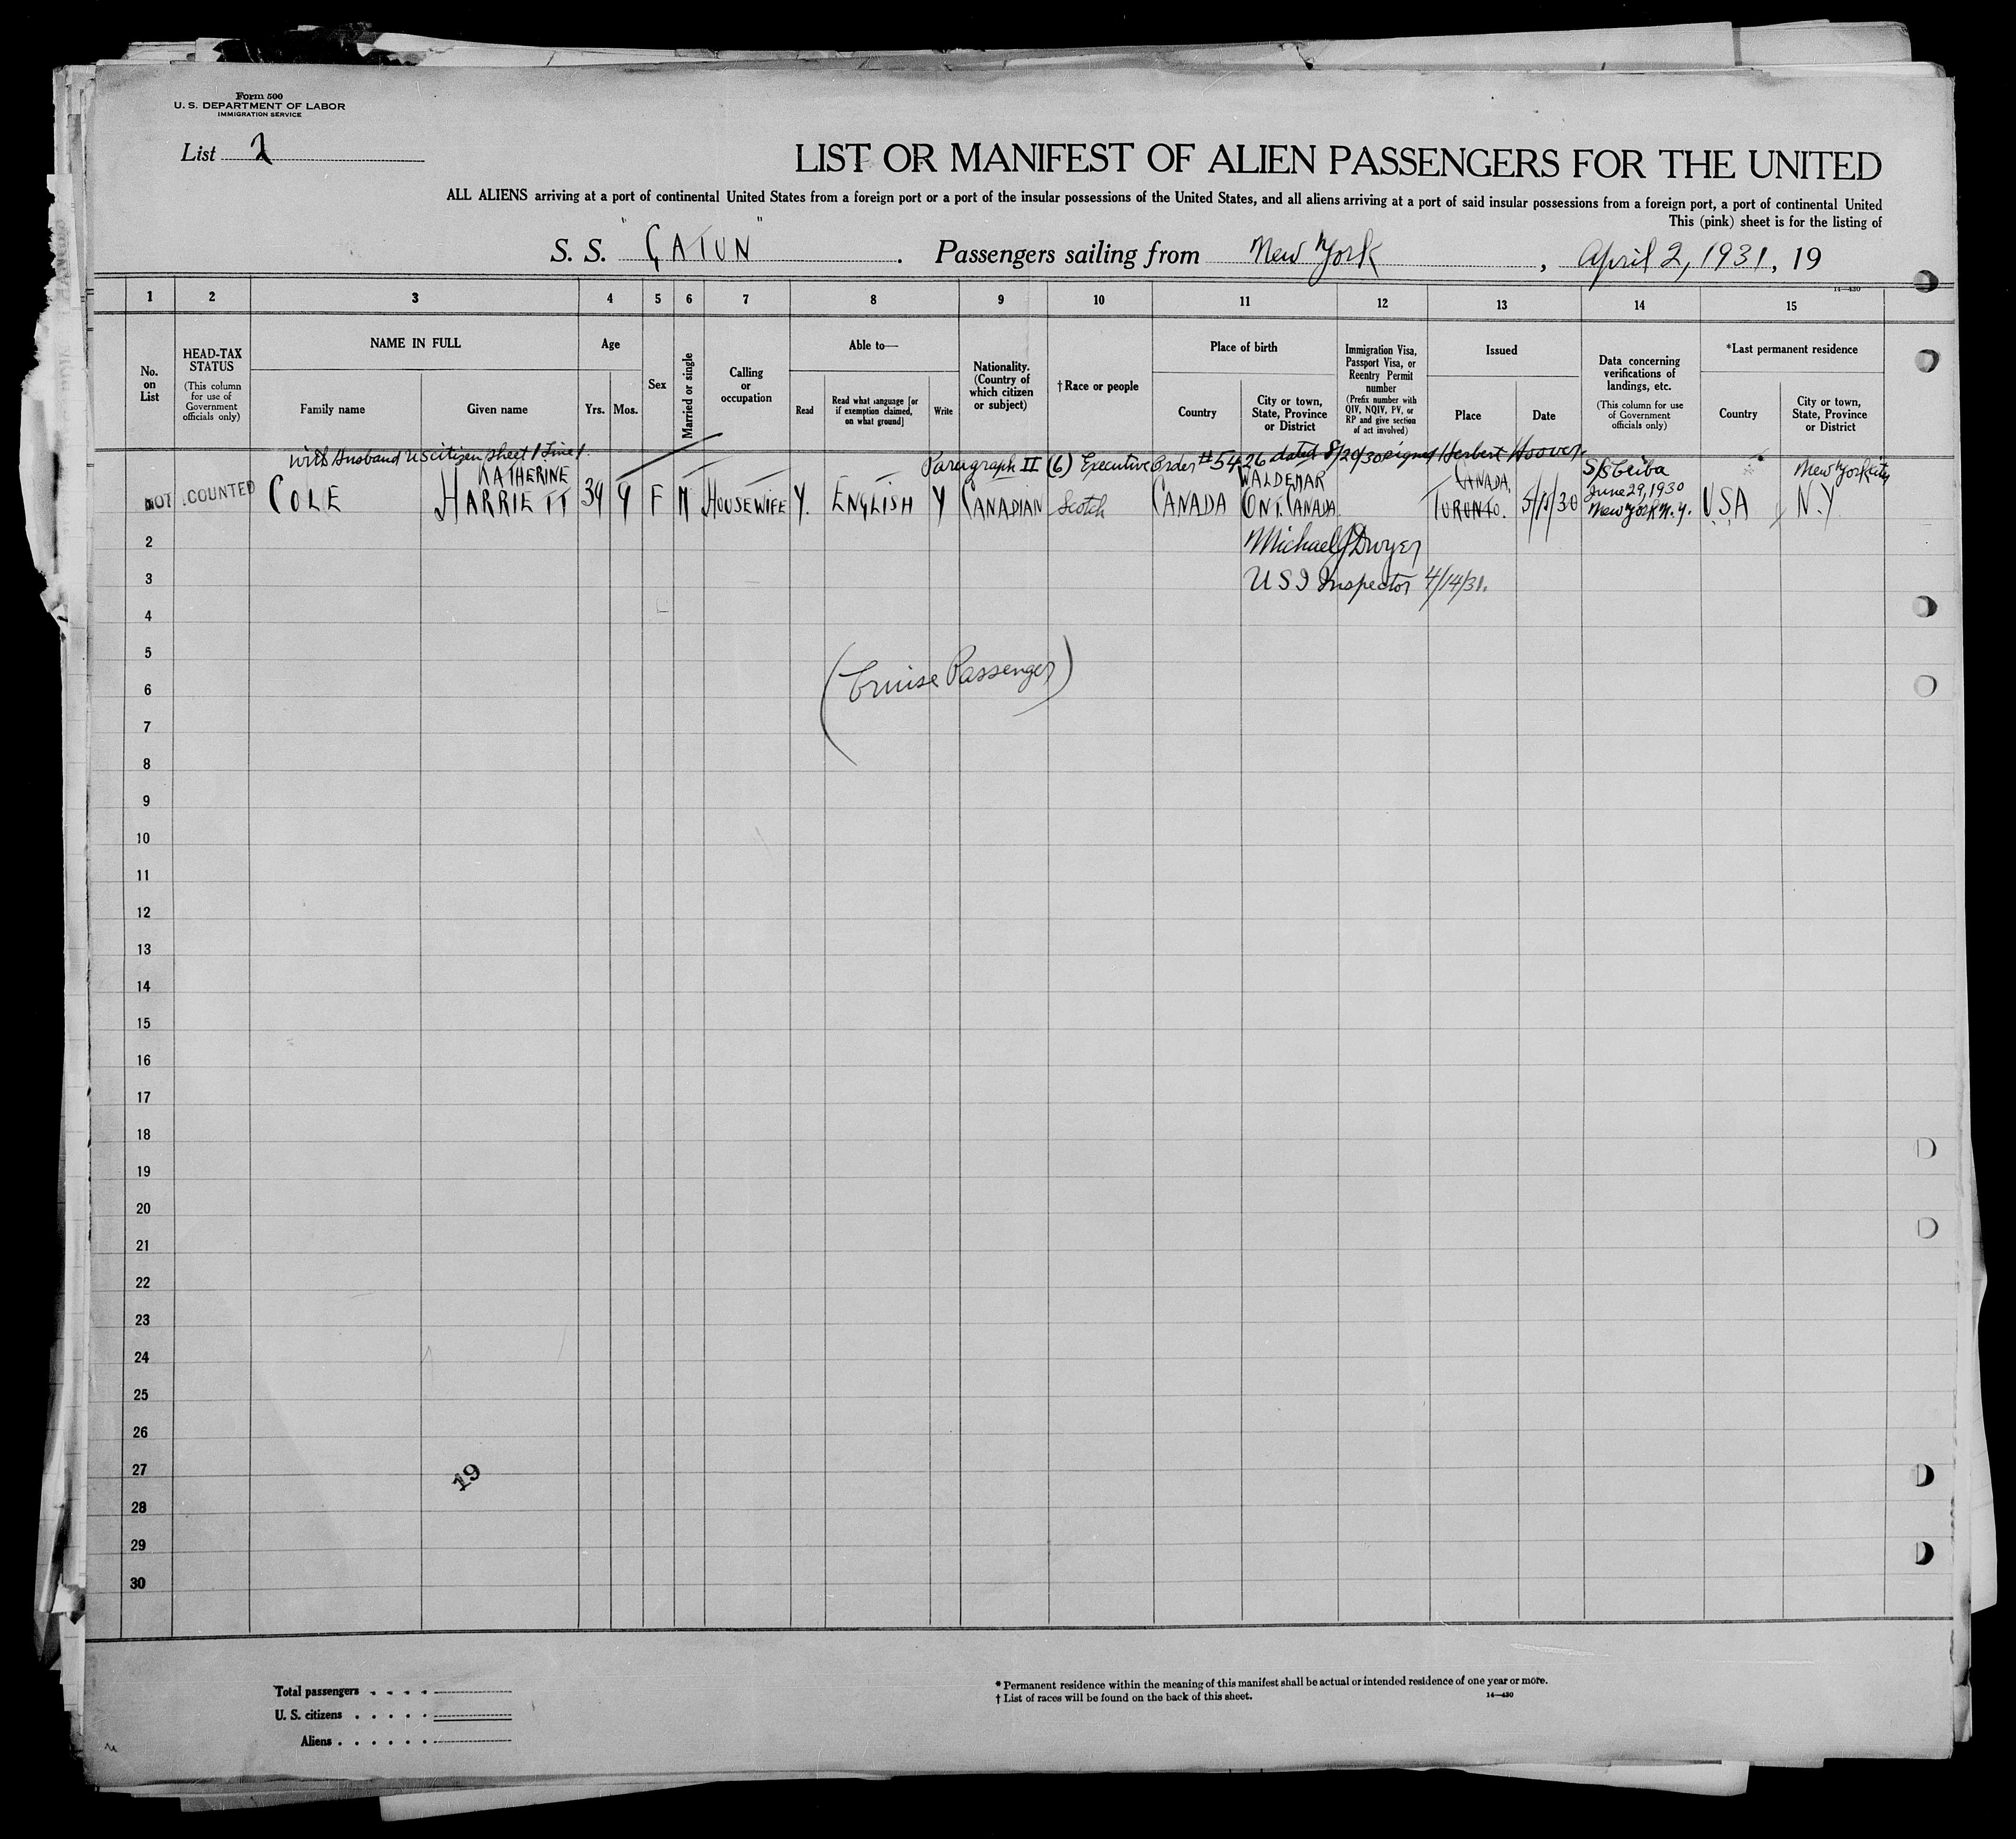 Form 500
U. S. DEPARTMENT OF LABOR
IMMIGRATION SERVICE
List 2
LIST OR MANIFEST OF ALIEN PASSENGERS FOR THE UNITED
ALL ALIENS arriving at a port of continental United States from a foreign port or a port of the insular possessions of the United States, and all aliens arriving at a port of said insular possessions from a foreign port, a port of continental United
This (pink) sheet is for the listing of
S. S. "GATUN". Passengers sailing from New York, April 2, 1931, 19
14—430
1 2 3 4 5 6 7 8 9 10 11 12 13 14 15
No. on List
HEAD-TAX STATUS
(This column for use of Government officials only)
NAME IN FULL
Family name
Given name
Age
Yrs. Mos.
Sex
Married or single
Calling or occupation
Able to—
Read
Read what language [or if exemption claimed, on what ground]
Write
Nationality. (Country of which citizen or subject)
†Race or people
Place of birth
Country
City or town, State, Province or District
Immigration Visa, Passport Visa, or Reentry Permit number
(Prefix number with QIV, NQIV, PV, or RP and give section of act involved)
Issued
Place
Date
Data concerning verifications of landings, etc.
(This column for use of Government officials only)
*Last permanent residence
Country
City or town, State, Province or District
With Husband US citizen sheet 1 Line 1.
Paragraph II (6) Executive Order #5426 dated 8/20/30 signed Herbert Hoover.
KATHERINE WALDEMAR CANADA, S/S Ceiba New York City
NOT COUNTED COLE HARRIETT 39 9 F M HOUSEWIFE Y. ENGLISH Y CANADIAN Scotch CANADA ONT. CANADA TORONTO. 5/15/30 June 29, 1930 U.S.A N.Y
New York N.Y.
2 Michael J Dwyer
3 U S I Inspector 4/14/31.
4
5
(Cruise Passenger)
6
7
8
9
10
11
12
13
14
15
16
17
18
19
20
21
22
23
24
25
26
27
19
28
29
30
Total passengers
U. S. citizens
Aliens
* Permanent residence within the meaning of this manifest shall be actual or intended residence of one year or more.
† List of races will be found on the back of this sheet.
14—430